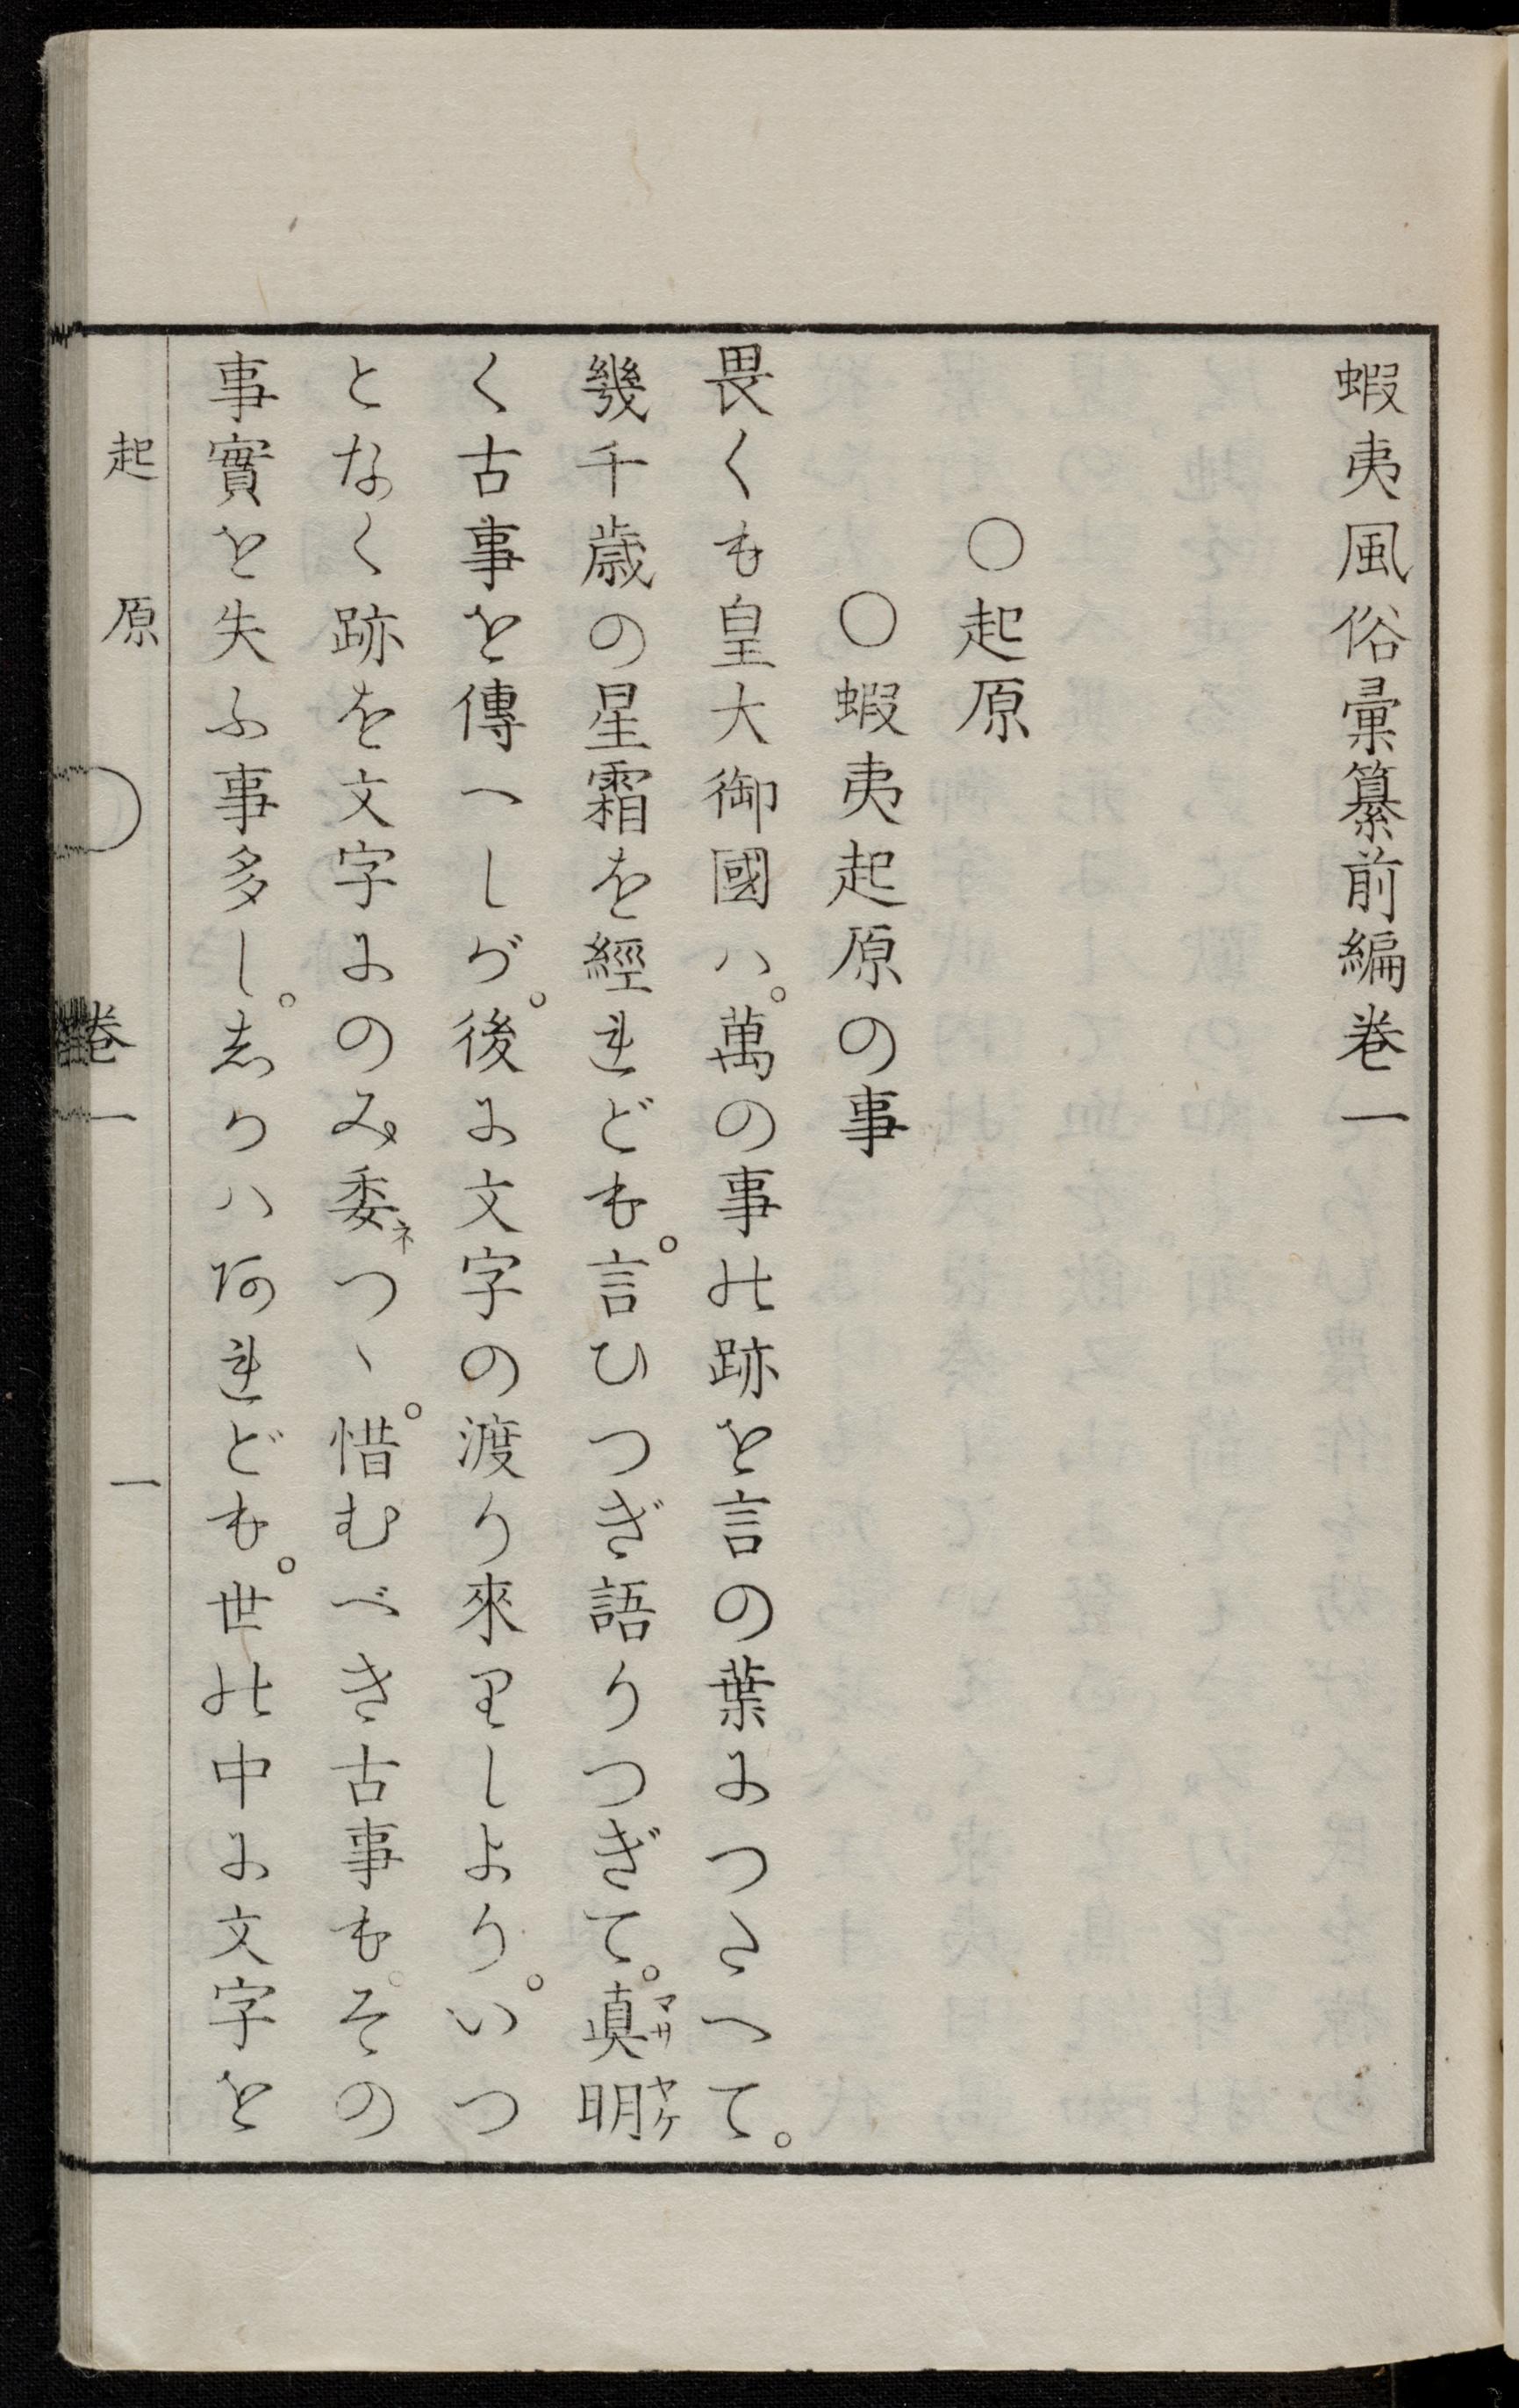 蝦夷風俗彙纂前編卷一
○起原
○蝦夷起原の事
畏くも皇大御國ハ。萬の事の跡を言の葉につたへて。
幾千歳の星霜を經れども。言ひつぎ語りつぎて。真マサ明ヤケ
く古事を傳へしが。後に文字の渡り來りしより。いつ
となく跡を文字にのみ委ネつゝ。惜むべき古事も。その
事實を失ふ事多し。志かハあれども。世の中に文字を
起原 卷一 一